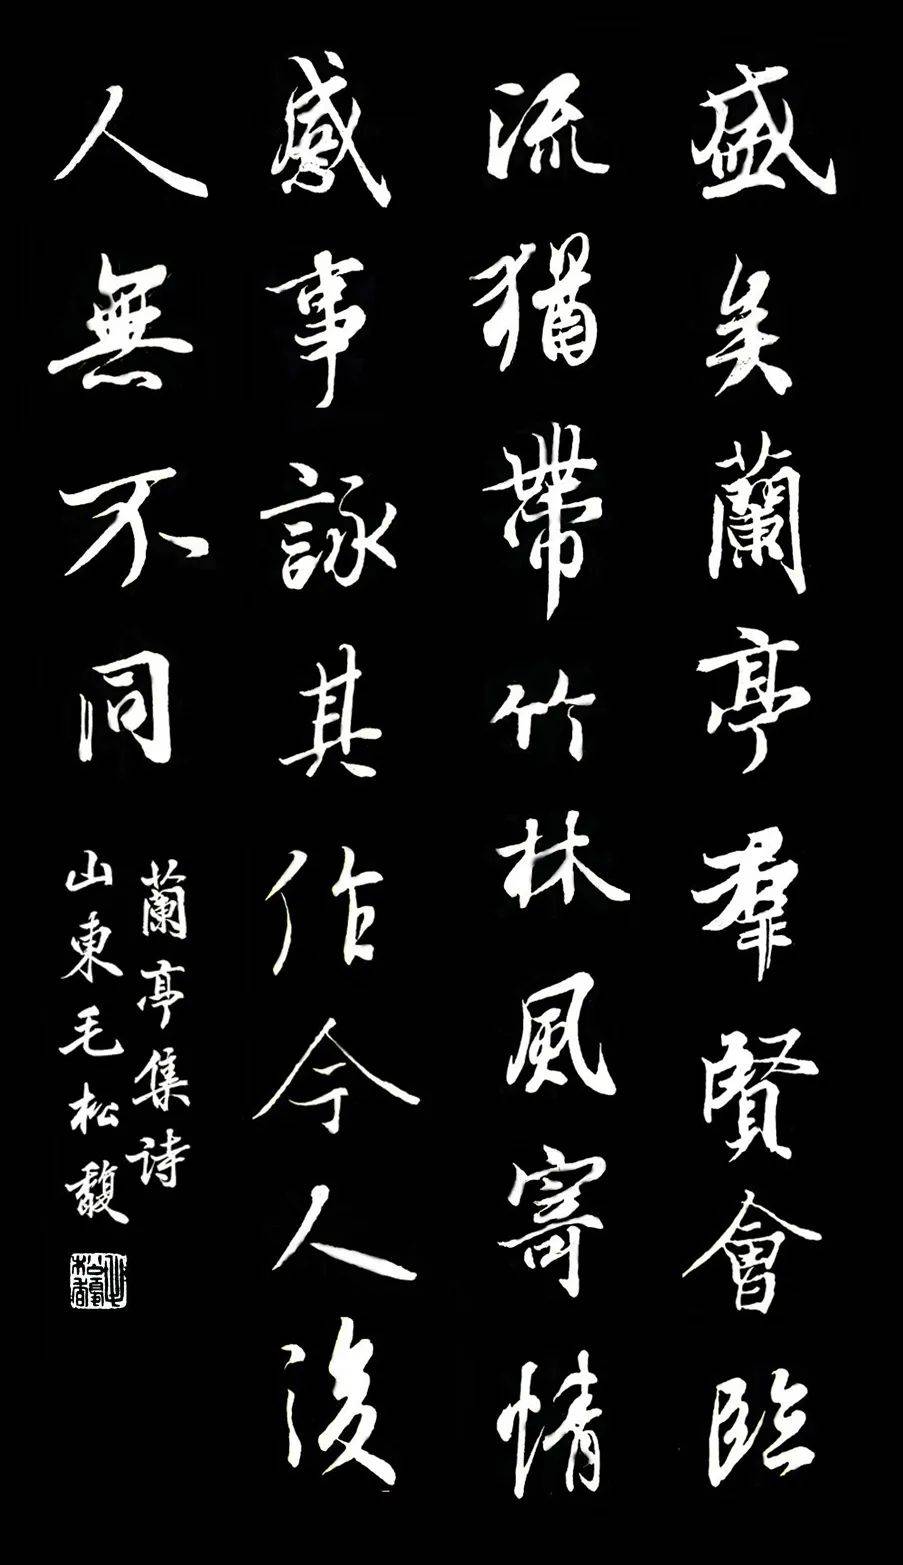 盛矣蘭亭羣賢會臨
流猶帶竹林風寄情
感事詠其作今人後
人無不同
蘭亭集詩
山東毛松馥